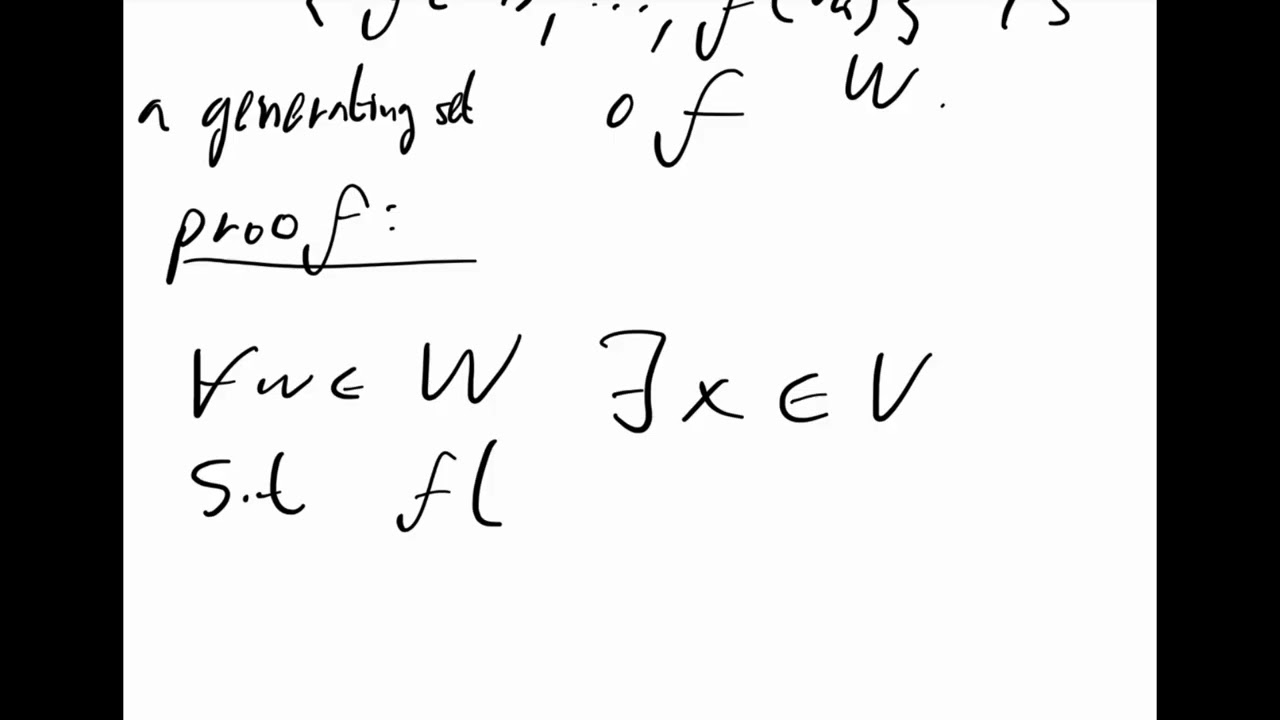 a generating set of W.
proof:
∀ w ∈ W ∃ x ∈ V
s.t f(